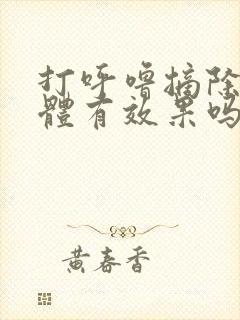 打呼噜摘除
體有效果吗
黄春香